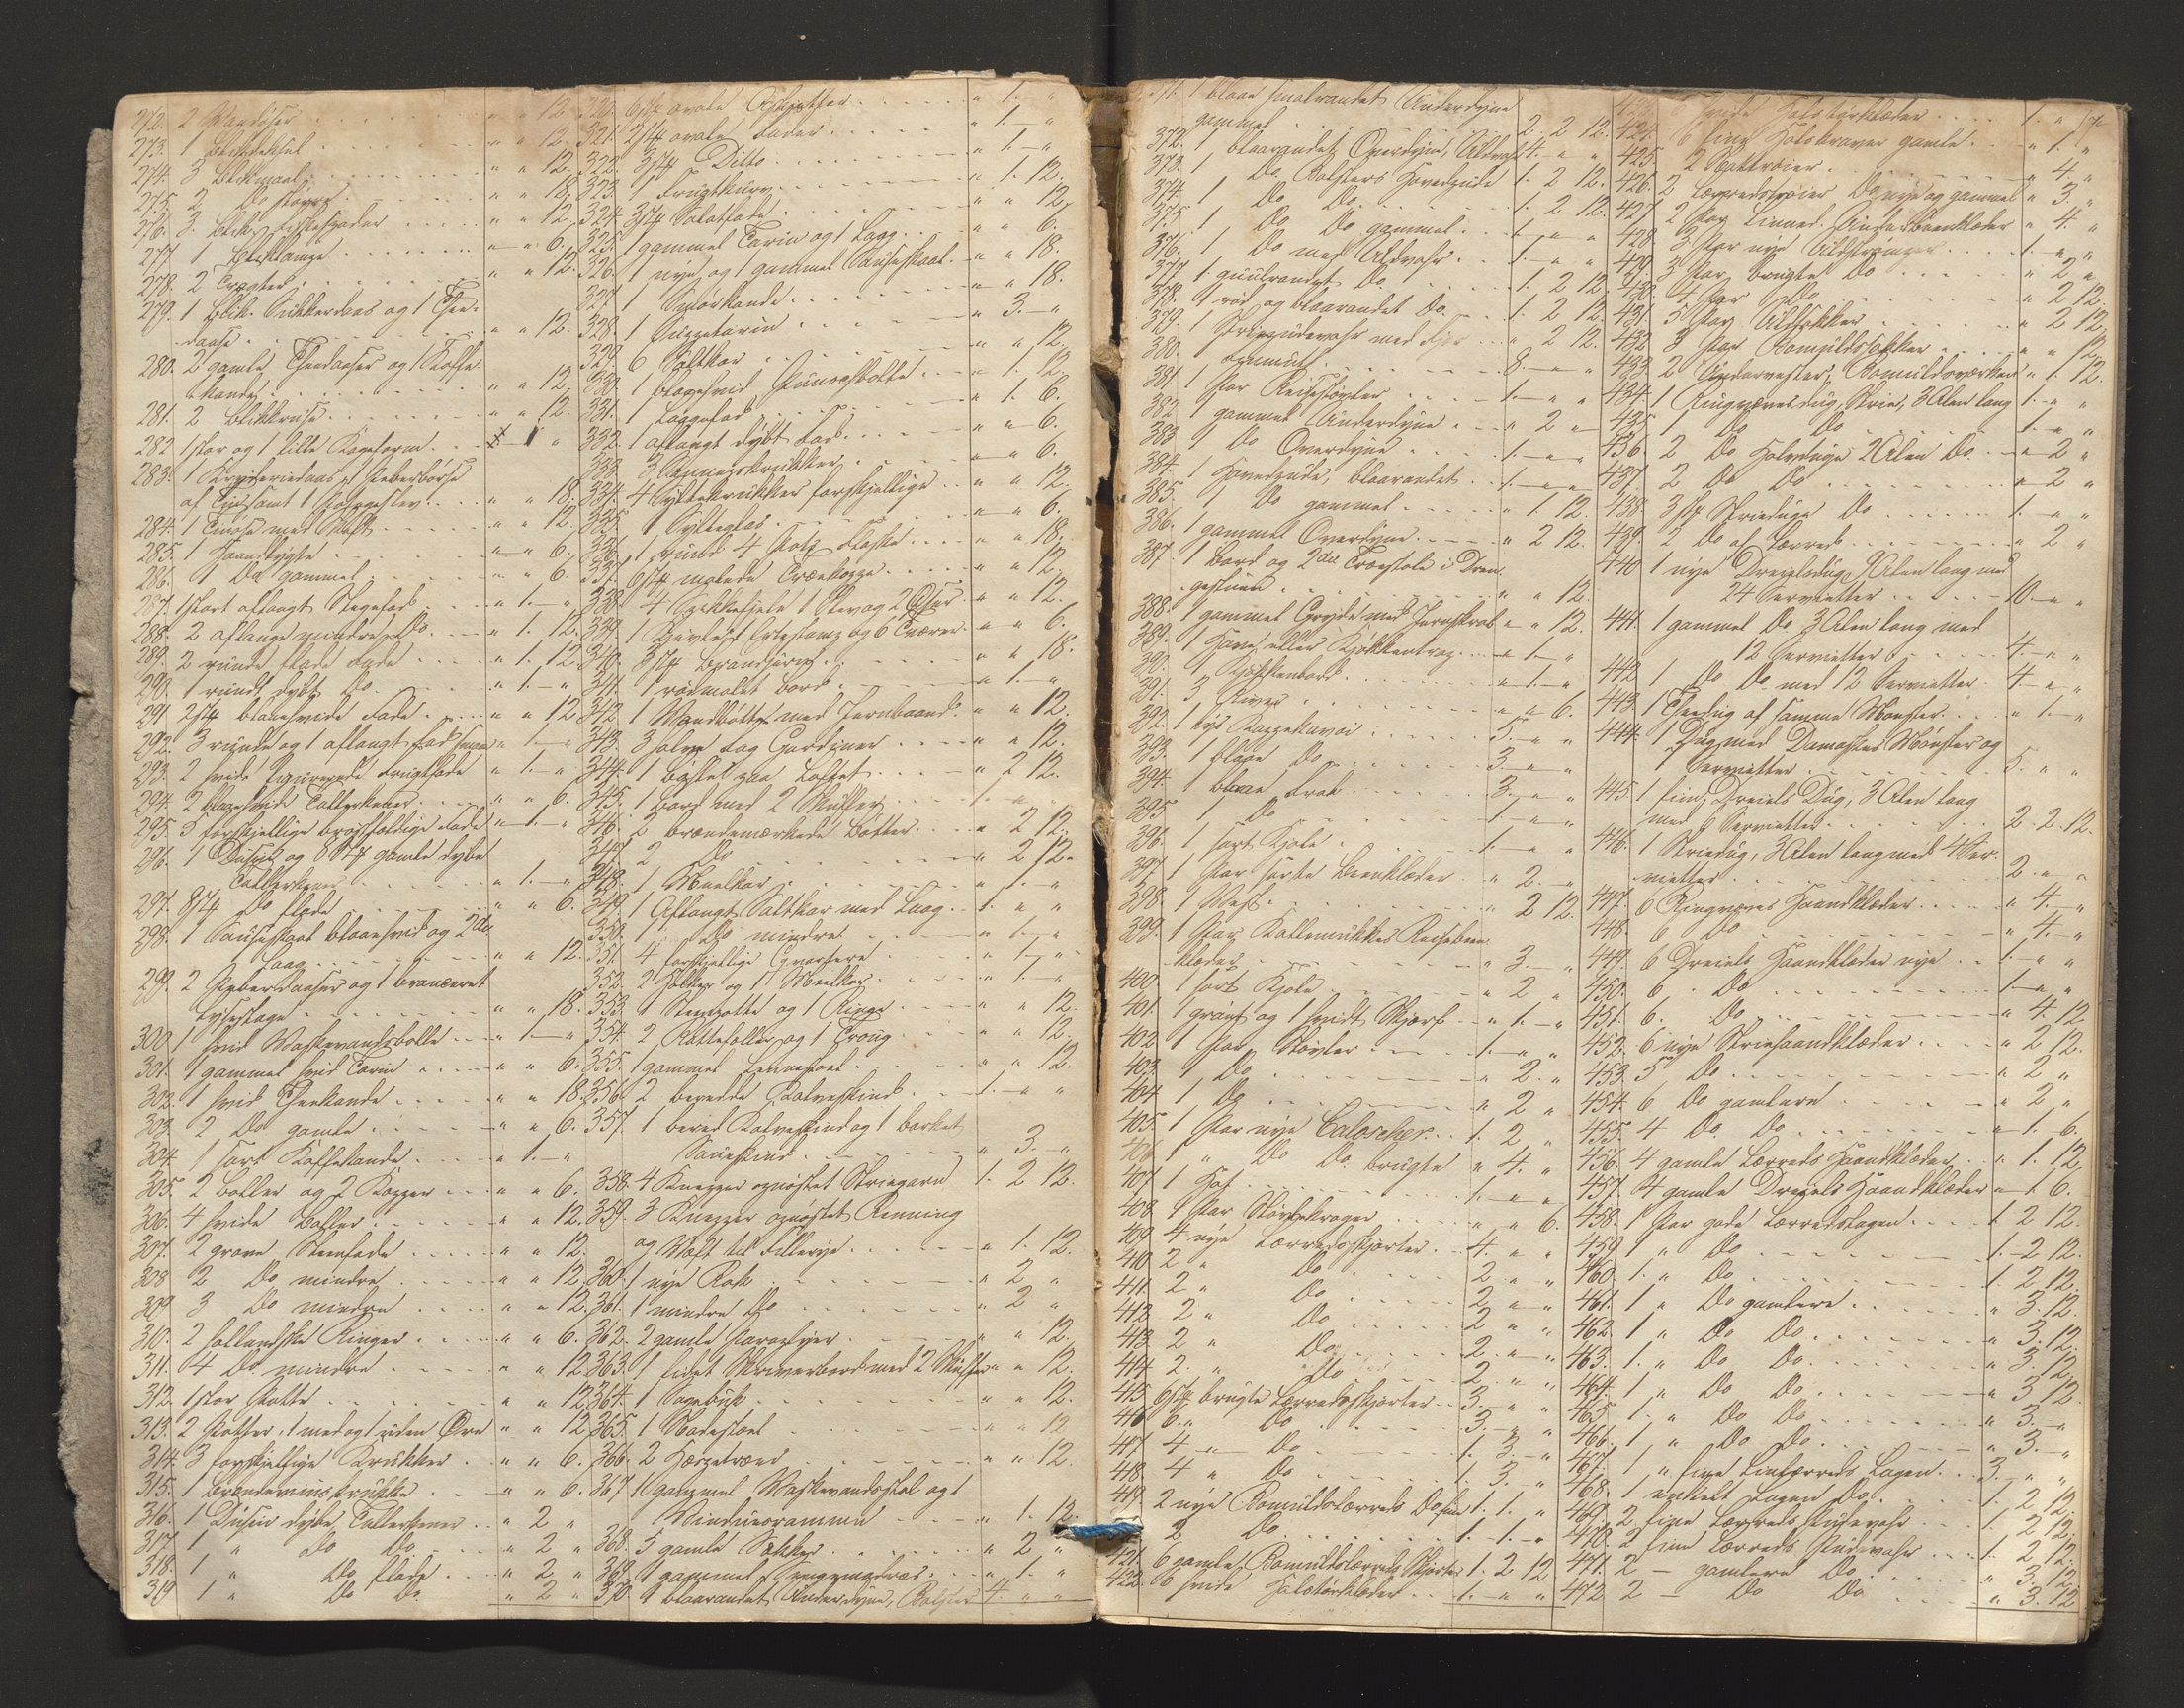 272. 2 Vandøser . . . „ „ 12.
273. 1 Blikdeksel . . . „ „ 12.
274. 3 Blikmaal . . . „ „ 12.
275. 2 Do større . . . „ „ 18.
276. 3 Blik . . . „ „ 12.
277. 1 Bliklampe . . . „ „ 6.
278. 2 Tragter . . . „ „ 12.
279. 1 Blik Sukkerdaas og 1 Thee-
daase . . . „ „ 12.
280. 2 gamle Theedaaser og 1 Kaffe
kande . . . „ „ 12.
281. 2 Blikkruse . . . „ „ 12.
282 1 stor og 1 lille Kageform . . . „ 1 „
283. 1 Kryderiedaas, 1 Peberbøsse
af samt 1 . . . „ „ 18.
284. 1 med Skaft . . . „ „ 12.
285. 1 Haandlygte . . . „ „ 6.
286. 1 Do gammel . . . „ „ 6.
287. 1 stort aflangt Stegefad . . . „ 1. „
288. 2 aflange mindre Do . . . „ 1. 12.
289. 2 runde flade Fade . . . „ 1. 12.
290. 1 rundt dybt Do . . . „ 1. „
291 2 Stk blaaehvide Fade . . . „ „ 12
292. 3 runde og 1 aflangt Fad „ 1. „
293. 2 hvide Figurerede Frugtfade „ 1. „
294. 2 blaaehvide Tallerkener . . . „ „ 6.
295. 5 forskjellige brøstfældige Fade „ 1. „
296. 1 Dusin og 8 Stk gamle dybe
Tallerkener . . . „ 1. „
297. 8 Stk Do flade . . . „ „ 6.
298. 1 Sauseskaal blaaehvid og 2de
Laag . . . „ „ 12.
299. 2 Peberdaaser og 1 bronceret
Lysestage . . . „ „ 18.
300 1 hvid Vaskevandsbolle . . . „ 1. „
301. 1 gammel hvid Tarin . . . „ „ 6.
302. 1 hvid Theekande . . . „ „ 18.
303. 2 Do gamle . . . „ „ 6.
304. 1 sort Kaffekande . . . „ 1. „
305. 2 Boller og 2 Kopper . . . „ „ 6.
306. 4 hvide Boller . . . „ „ 12.
307. 2 grove Steenfade . . . „ „ 12.
308 2 Do mindre . . . „ „ 12.
309. 3 Do mindre . . . „ „ 12.
310. 2 hollandske Ringer . . . „ „ 6.
311. 4 Do mindre . . . „ „ 12.
312. 1 stor Potte . . . „ „ 12
313. 2 Potter, 1 med og 1 uden Øre „ „ 12
314. 3 forskjellige Krukker . „ „ 6.
315. 1 Brændeviinskrukke . . „ „ 6.
316. 1 Dusin dybe Tallerkener . . „ 2 „
317 1 „ Do Do . . . „ 2 „
318. 1 „ Do flade . . . „ 2 „
319 1 „ Do Do . . . „ 2 „
320. 6 Stk ovale . . . „ 1. „
321. 2 Stk ovale Fader . . . „ 1. „
322. 3 Stk Ditto . . . „ 1. „
323. 1 Frugtkurv . . . „ 1. 12.
324. 3 Stk Salatfade . . . „ „ 12.
325. 1 gammel Tarin og 1 Laag . . . „ „ 6.
326. 1 nye og 1 gammel Sauseskaal . „ „ 18.
327. 1 Smørkande . . . „ „ 18.
328. 1 Suppetarin . . . „ 3. „
329. 6 Saltkar . . . „ „ 12.
330. 1 blaaehvid Punschbolle . . . „ 1. 12.
331. 1 Laagefad . . . „ 1. 6.
332. 1 aflangt dybt Fad . . . „ „ 6.
333. 3 Sennepskrukker . . . „ „ 6.
334. 4 Syltekrukker forskjellige . . . „ „ 12.
335. 1 Sylteglas . . . „ „ 6.
336. 1 rund 4 Potz Flaske . . . „ „ 18.
337. 6 Stk malede Trækopper . . . „ „ 12.
338. 4 1 og 2 „ „ 12.
339. 1 og 6 Tvarer . „ „ 6.
340. 3 Stk Brandjern . . . „ „ 18.
341. 1 rødmalet Bord . . . „ 1. „
342 1 Vandbøtte med Jernbaand . „ „ 12.
343. 3 halve Fag Gardiner . . . „ „ 12.
344. 1 paa Loftet . . . „ 2 12.
345. 1 Bord med 2 Skuffer . . . 1. „ „
346. 2 brændemærkede Bøtter . . . „ 2 12.
347. 2 Do . . . „ 2 12.
348. 1 Meelkar . . . „ 1. „
349. 1 Aflangt Saltkar med Laag . 1. „ „
350. 1 Do mindre . . . „ 1. „
351. 4 forskjellige Qvartere . . . „ 1. „
352. 2 Holker og 1 . . . „ 1. „
353. 1 Steenpotte og 1 Ringe . . . „ „ 12.
354. 2 Rottefælder og 1 Troug . . . „ „ 12.
355. 1 gammel Lænestoel . . . „ „ 12.
356. 2 beredte Kalveskind . . . 1. „ „
357. 1 bered Kalveskind og 1 barket
Saueskind . . . „ 3. „
358. 4 Knepper opnøstet Striegarn 1. 2 12.
359. 3 Knepper opnøstet Renning
og Væft til Fillerye . . . „ 1. 12.
360. 1 nye Rok . . . „ 2 „
361. 1 mindre Do . . . „ 2 „
362. 2 gamle Paraplyer . . . „ „ 12.
363. 1 lidet Skriverbord med 2 Skuffer „ „ 12.
364. 1 Sagebuk . . . „ „ 12.
365. 1 Stadestoel . . . „ „ 12
366. 2 Hærpetræer . . . „ „ 12.
367 1 gammel Vaskevandsstol og 1
Vinduesramme . . . „ 1. 12.
368. 5 gamle Sækker . . . „ 2 „
369. 1 gammel . . . „ 1. „
370 1 blaarandet Underdyne, Bolster 4. „ „
371. 1 blaae smalrandet Underdyne
gammel . . . 2. 2 12.
372. 1 blaarandet Overdyne, Uldvahr 4. „ „
373. 1 Do Bolsters Hovedpude 1. 2 12.
374. 1 Do Do . . . 1. 2 12.
375. 1 Do Do gammel . . „ „
376. 1 Do med Uldvahr . . 1. „ „
377. 1 guulrandet Do . . . 1. 2 12.
378. 1 rød og blaarandet Do . . 1. 2 12.
379. 1 Striepudevahr med Fjær . . „ 2 12.
380. . . . 8. „ „
381. 1 Par Reisestøvler . . . 1. „ „
382 1 gammel Underdyne . . . „ 2 „
383 1 Do Overdyne . . . 1. „ „
384. 1 Hovedpude, blaarandet . . 1. „ „
385. 1 Do gammel . . . „ 1. 12.
386. 1 gammel Overdyne . . . „ 2 12.
387 1 Bord og 2de Træestole i Dren-
gestuen . . . „ „ 12.
388. 1 gammel Gryde med Jernskrab „ „ 12.
389. 1 Have eller Kjøkkentrap . . . „ 1. „
390. 1 Kjøkkenbord . . . „ 1. „
391. 3 River . . . „ „ 6.
392. 1 lys Kappekavai . . . 5. „ „
393. 1 blaae Do . . . 3. „ „
394. 1 blaae Frak . . . 3. „ „
395 1 Do . . . 1. „ „
396. 1 sort Kjole . . . 1. „ „
397. 1 Par sorte Beenklæder . „ 2. „
398. 1 Vest . . . „ 2 12.
399. 1 Par Kallemukkes Reisebeen
klæder . . . „ 3. „
400. 1 sort Kjole . . . „ 2 „
401. 1 grønt og 1 hvidt Skjærf . . „ 1. „
402. 1 Par Støvler . . . 1. „ „
403. 1 Do . . . „ 2. „
404 1 Do . . . „ 2 „
405. 1 Par nye Caloscher . . 1. 2 „
406 1 „ Do Do brugte „ 4. „
407 1 Hat . . . 1. „ „
408. 1 Par Støvlekroger . . . „ „ 6.
409 4 nye Lærredsskjorter . . 4. „ „
410 2 „ Do . . . 2 „ „
411. 2 „ Do . . . 2 „ „
412 2 „ Do . . . 2 „ „
413. 2 „ Do . . . 2. „ „
414 2. „ Do . . . 2 „ „
415 6 Stk brugte Lærredsskjorter . . 3. „ „
416 6. „ Do . . . 3. „ „
417 4 „ Do . . . 1. 3. „
418. 4 „ Do . . . 1. 3. „
419 2 nye Bomuldslærreds Do fine 1. 1. „
2 Do . . . 1. 1. „
421. 6 gamle Bomuldslærreds Skjorter 1. 2 12
422. 6 hvide Halstørklæder . . 1. „ „
423. 6 hvide Halstørklæder . . . 1. „ „
424. 6 fine Halskraver gamle . . . „ 1. „
425. 2 Nattrøier . . . „ 4. „
426. 2 Lærredstrøier Do nye og gammel „ 3. „
427 2 Par Linned Underbeenklæder „ 4. „
428 3 Par nye Uldstrømper . . . 1. „ „
429. 3 Par brugte Do . . . „ 2 „
430. 4 Par Do . . . „ 2 12.
431 5 Par Uldsokker . . . „ 2 12.
432 8 Par Bomuldssokker . . . „ „ 12.
433. 2 Undervester, Bomuldsværken „ 1. 12.
434. 1 Ringvævet Dug, Strie, 3 Alen lang 1. „ „
435 1 Do Do . . . 1. „ „
436 2 Do Halvduge 2 Alen Do . . „ 2 „
437. 2 Do Do . . . „ 2 „
438. 3 Stk Strieduge Do . . . 1. „ „
439 2 Do af Lærred . . . „ 2 „
440 1 nye Dreielsdug 9 Alen lang med
24 Servietter . . . 10. „ „
441. 1 gammel Do 3 Alen lang med
12 Servietter . . . 4. „ „
442 1 Do Do med 12 Servietter . 4. „ „
443. 1 Theedug af samme Mønster . . „ 1. „
444. 1 Dug med Damaskes Mønster og
Servietter . . . 5. „ „
445. 1 fiin Dreiels Dug, 3 Alen lang
med 6 Servietter . . . 2. 2. 12.
446. 1 Striedug, 3 Alen lang med 4 Ser-
vietter . . . 2. „ „
447. 6 Ringvæves Haandklæder . . . „ 4. „
448. 6 Do . . . „ 4. „
449. 6 Dreiels Haandklæder nye . . 1. „ „
450. 6 Do . . . 1. „ „
451. 6. Do . . . „ 4. 12.
452. 6 nye Striehaandklæder . . . „ 2 12.
453. 5 Do . . . „ 2 „
454. 6 Do gamlere . . . „ 2 „
455. 4 Do Do . . . „ 1. 6.
456. 4 gamle Lærreds Haandklæder . „ 1. 12.
457. 4 gamle Dreiels Haandklæder „ 1. 6.
458. 1 Par gode Lærredslagen . . . 1. 2 12.
459 1 „ Do . . . 1. 2 12.
460. 1. „ Do . . . 1. 2 12.
461. 1 „ Do gamlere . . . „ 3. 12.
462. 1 „ Do Do . . . „ 3. 12.
463. 1. „ Do Do . . . „ 3. 12
464. 1 „ Do Do . . . „ 3 12.
465 1. „ Do Do . . . „ 3. „
466. 1 „ Do Do . . . „ 3. „
467. 1 „ fine Liinlærreds Lagen . . 3. „ „
468. 1 enkelt Lagen Do . . . 1. 2 12.
469. 2 fine Lærreds Pudevahr . . . 1. 2 12.
470. 2 fine Lærreds Pudevahr . . . 1. 2 12.
471. 2 — gamlere Do . . . „ 3. 12.
472 2 — Do Do . . . „ 3. 12